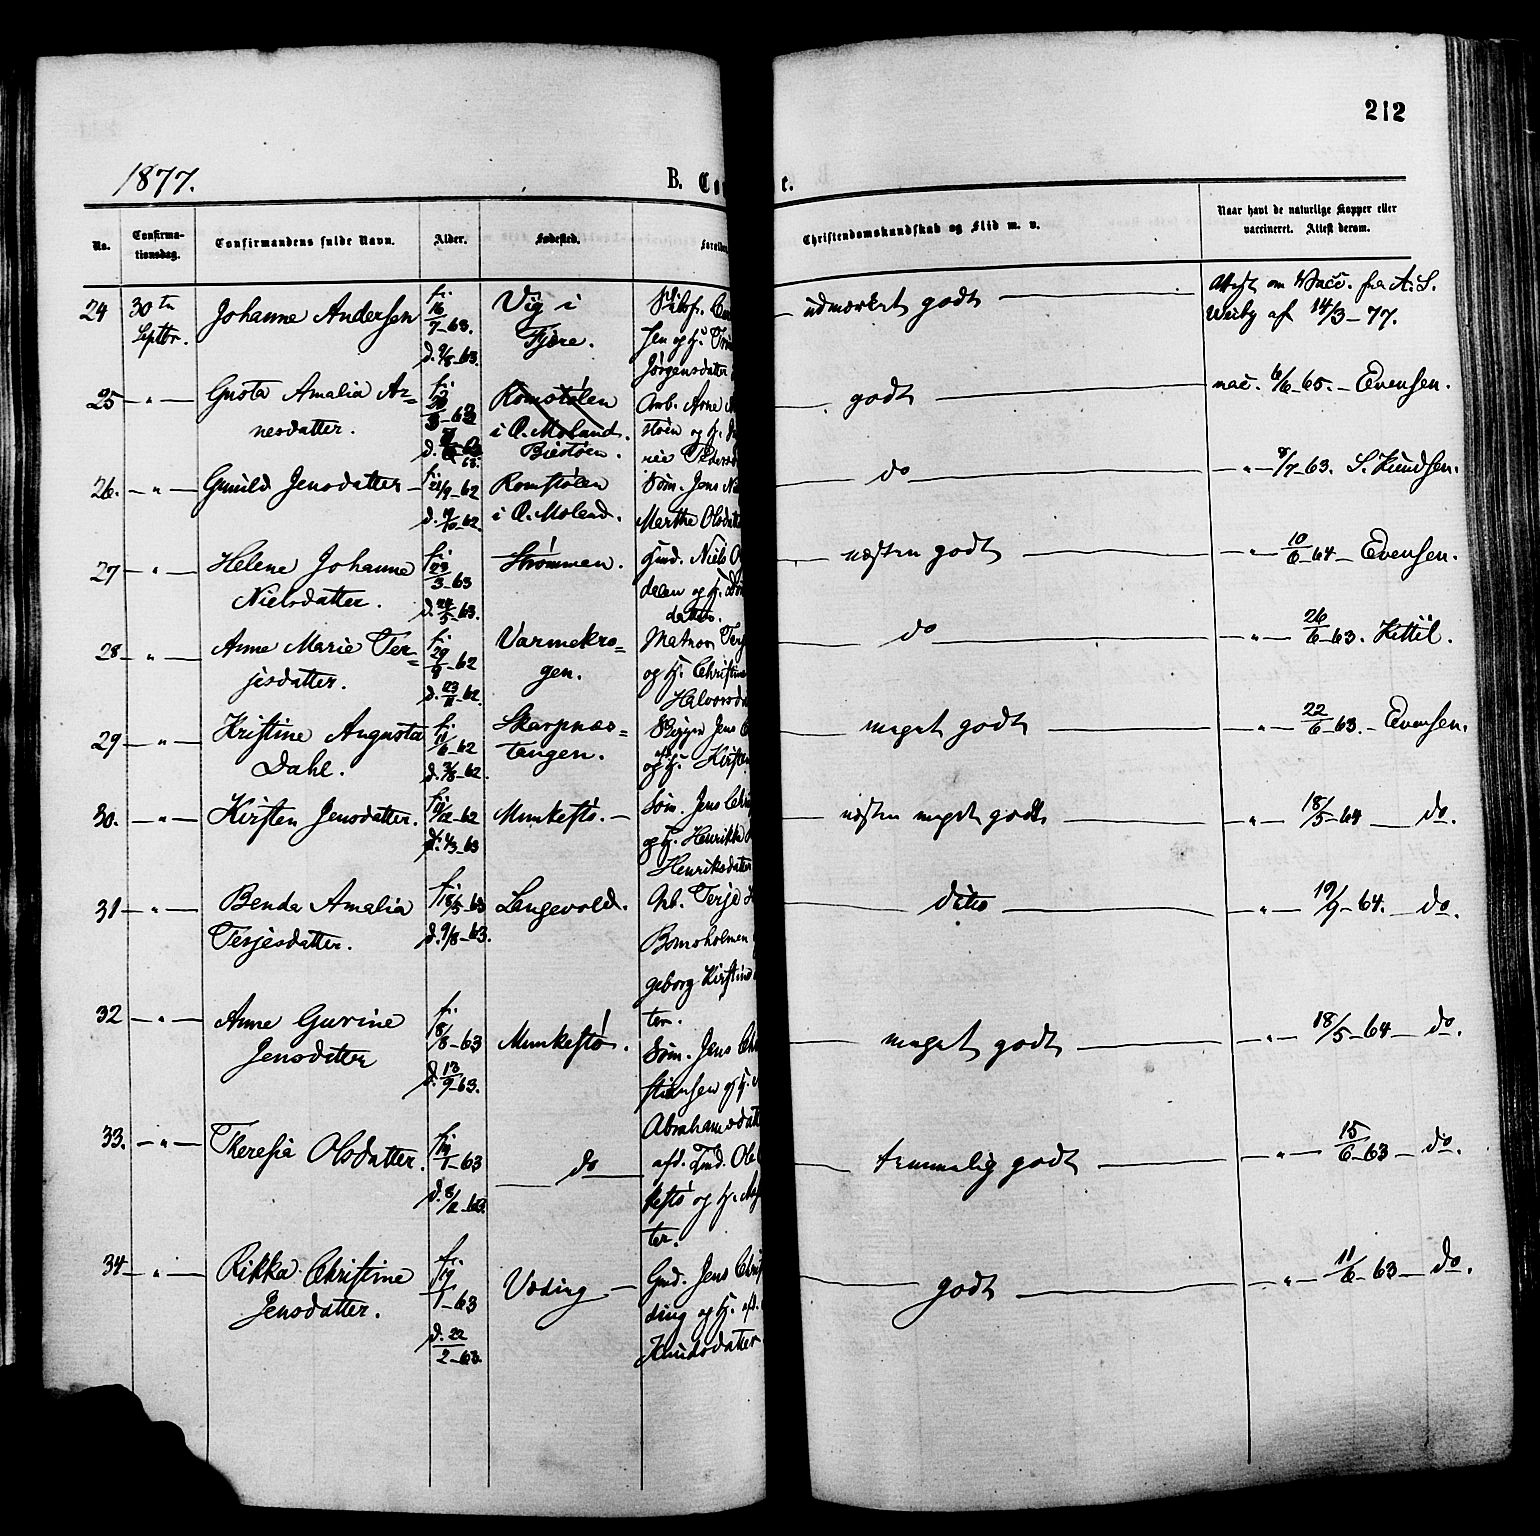 212
1877.
B.
No.
Confirma-
tionsdag.
Confirmandens fulde Navn.
Alder.
Fødested.
Forældre
Christendomskundskab og Flid m. v.
Naar havt de naturlige Kopper eller
vaccineret. Attest derom.
24 30te Septbr. Johanne Andersen f. 16/7-63. d. 9/8-63. Vig i Fjære.
Jørgensdatter
udmærket godt
Attest om Vacc. fra A. S.
Werby af 14/3-77.
25 - " - Gusta Amalia Ar=
nesdatter.
Romstølen
i Ø. Moland.
Biestøen.
Arb. Arne
støen og H.
godt
vac. 6/6-65. - Evensen.
26. - " - Gunild Jensdatter f. 21/9-62
Romstølen
i Ø. Moland.
Søm. Jens
Marthe Olsdat
do
" 8/7-63. S. Knudsen.
27 - " - Helene Johanne
Nielsdatter.
f. 23/3-63
d. 24/5-63.
Strømmen.
Gmd. Niels
delen og H.
datter.
næsten godt
" 10/6-64 - Evensen.
28 - " - Anne Marie Ter=
jesdatter.
f. 29/9-62
d. 23/11-62.
Varmekro=
gen.
Matros Terj
og H. Christine
Halvorsda
do
" 26/6-63. Kittil.
29 - " - Kristine Augusta
Dahl.
f. 11/6-62
d. 3/8-62.
Skarpnæs=
tangen.
Jens
og H. Kirsten
meget godt
" 22/6-63. - Evensen.
30. - " - Kirsten Jensdatter.
f. 19/12-62
d. 4/3-63
Munkestø. -
Søm. Jens Chri
og H. Henrikke
Henriksdatter
næsten meget godt
" 18/5-64 do.
31 - " - Benda Amalia
Terjesdatter.
f. 18/5-63
d. 9/8-63.
Langevold.
Arb. Terje
Bomsholmen
geborg Kirstine
ter.
ditto
" 19/9-64. do.
32 - " - Anne Gurine
Jensdatter
f. 18/8-63
d. 13/9-63.
Munkestø.
Søm. Jens Chri
stiansen og H.
Abrahamsdatt
meget godt
" 18/5-64 do.
33. - " - Theresia Olsdatter.
f. 19/1-63
d. 8/2-63.
do
afd. Gmd. Ole
kestø og H.
ter.
temmelig godt
" 15/6-63 do.
34 - " - Rikka Christine
Jensdatter.
f. 19/1-63
d. 22/2-63.
Vøding -
Gmd. Jens Chris
ding og H.
Knudsdatter
godt
" 11/6-63 do.